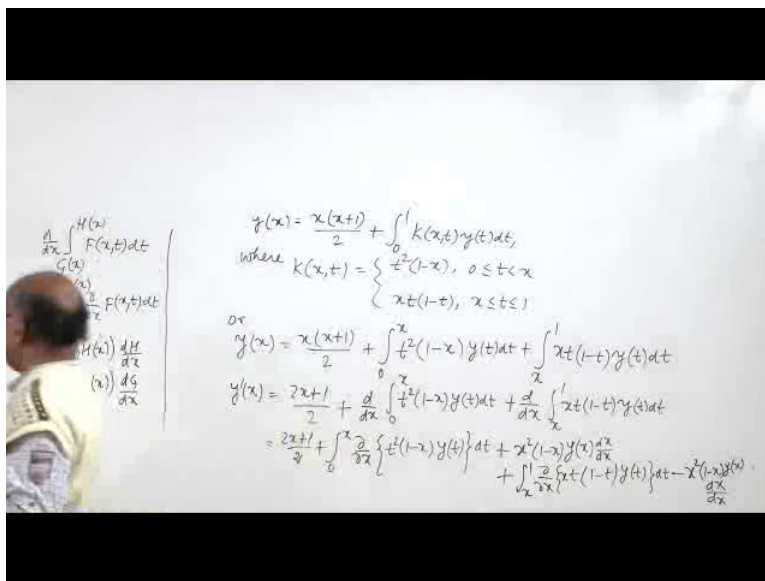 d/dx ∫_{G(x)}^{H(x)} F(x,t)dt
F(x,t)dt
H(x)) dH/dx
(x)) dG/dx
y(x) = x(x+1)/2 + ∫_0^1 K(x,t) y(t)dt,
where K(x,t) = { t²(1-x), 0 ≤ t < x
xt(1-t), x ≤ t ≤ 1
or
y(x) = x(x+1)/2 + ∫_0^x t²(1-x) y(t)dt + ∫_x^1 xt(1-t) y(t)dt
y'(x) = 2x+1/2 + d/dx ∫_0^x t²(1-x) y(t)dt + d/dx ∫_x^1 xt(1-t) y(t)dt
= 2x+1/2 + ∫_0^x ∂/∂x {t²(1-x) y(t)} dt + x²(1-x) y(x) dx/dx
+ ∫_x^1 ∂/∂x {xt(1-t) y(t)} dt - x²(1-x) y(x) dx/dx